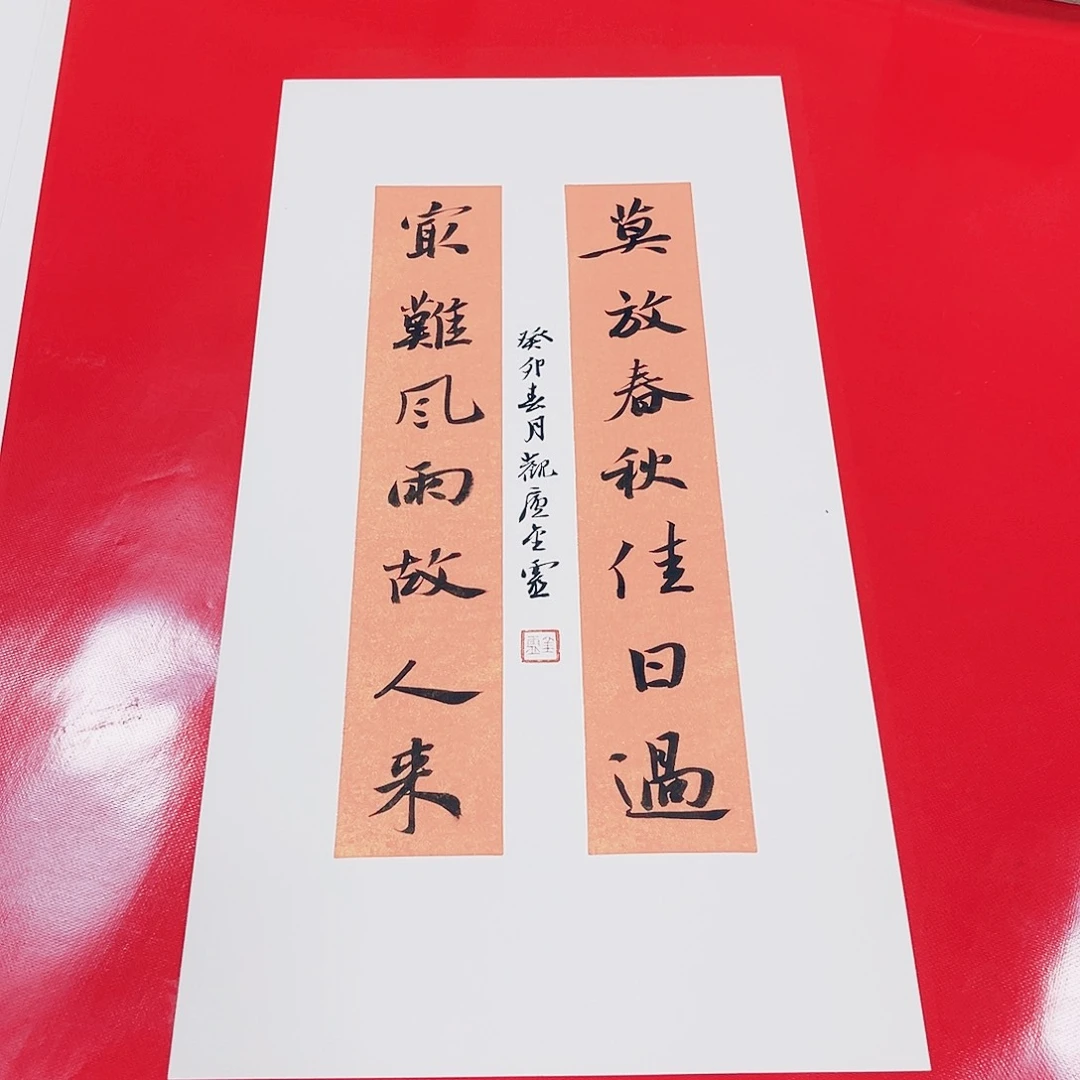 莫放春秋佳日過
㝡難風雨故人来
癸卯春月觀廬金霊